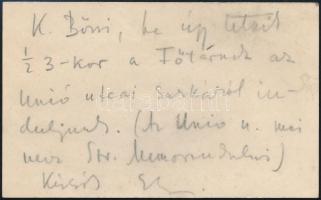 K. Bözsi, ha úgy tetszik
½ 3-kor a Főtérnek az
Unió utcai sarkáról in-
duljunk. (Az Unio u. mai
neve Str. Memorandului)